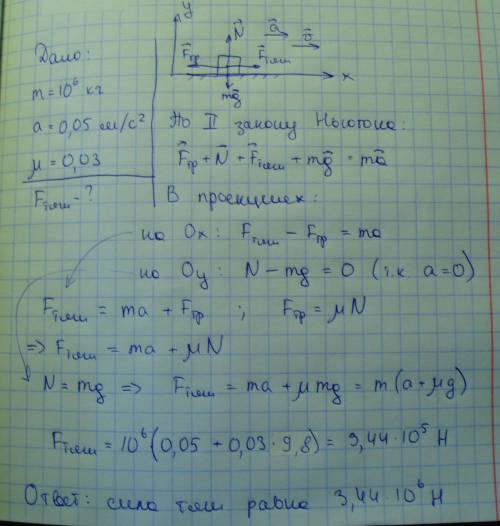 Дано:
m = 10⁶ кг
a = 0,05 м/с²
μ = 0,03
Fтяги - ?
y
N⃗
a⃗
υ⃗
F⃗тр
F⃗тяги
x
mg⃗
По II закону Ньютона:
F⃗тр + N⃗ + F⃗тяги + mg⃗ = ma⃗
В проекциях:
на Ox: Fтяги - Fтр = ma
на Oy: N - mg = 0 (т.к. a = 0)
Fтяги = ma + Fтр ; Fтр = μN
=> Fтяги = ma + μN
N = mg => Fтяги = ma + μmg = m(a + μg)
Fтяги = 10⁶(0,05 + 0,03 · 9,8) = 3,44 · 10⁵ Н
Ответ: сила тяги равна 3,44 · 10⁶ Н